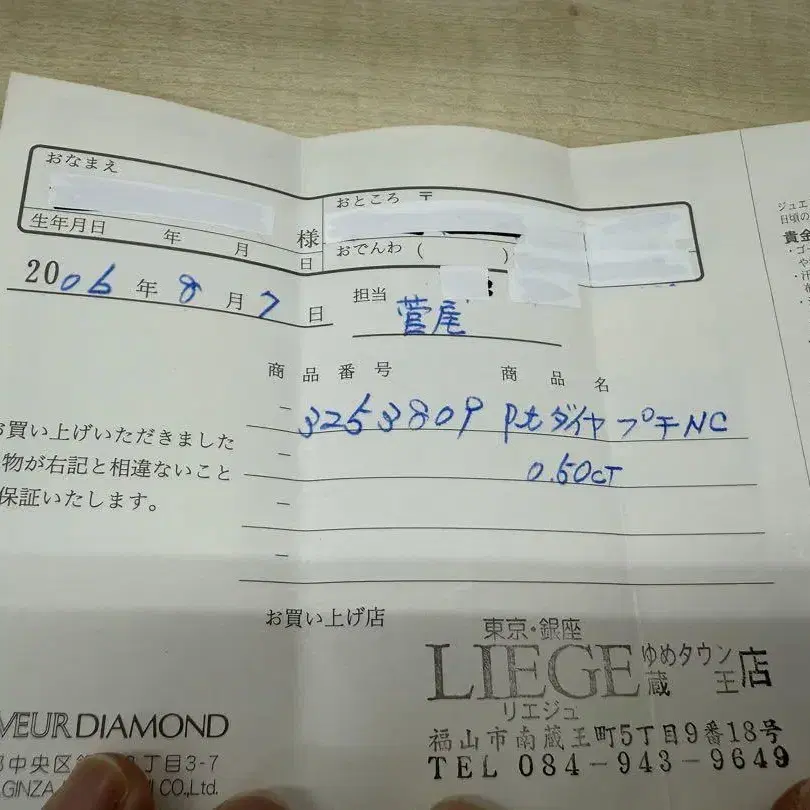 おなまえ
様
生年月日 年 月 日
おところ 〒
おでんわ ( )
2006年8月7日
担当 菅尾
商品番号 商品名
- 3253809 Ptダイヤプチ NC
- 0.50CT
-
-
お買い上げいただきました
物が右記と相違ないこと
保証いたします。
お買い上げ店
東京・銀座
LIEGE ゆめタウン蔵王店
リエジュ
福山市南蔵王町5丁目9番18号
TEL 084-943-9649
VEUR DIAMOND
中央区 丁目3-7
GINZA CO.,Ltd.
ジュエ
日頃の
貴金